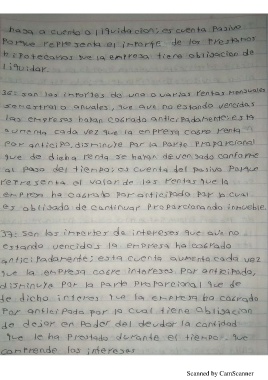 haga a cuenta o liquidacion; es cuenta Pasivo
Porque representa el importe de los Prestamos
Hipotecarios que la empresa tiene obligacion de
liquidar.
36: son los importes de una o varias rentas mensuales
semestral o anuales, que aun no estando vencidas
las empresas hallan cobrado anticipadamente; esta
aumenta cada vez que la empresa cobre renta
Por anticipo, disminuye Por la Parte Proporcional
que de dicha renta se hallan devengado conforme
al Paso del tiempo; es cuenta del Pasivo Porque
representa el valor de las rentas que la
empresa ha cobrado Por anticipado Por la cual
es obligado de continuar Proporcionando inmueble.
37: Son los importes de intereses que aun no
estando vencidos la empresa ha cobrado
anticipadamente; esta cuenta aumenta cada vez
que la empresa cobre intereses. Por anticipado,
disminuye Por la Parte Proporcional que de
te dicho interes que la empresa ha cobrado
Por anticipada Por lo cual tiene obligacion
de dejar en Poder del deudor la cantidad
que le ha Prestado durante el tiempo que
comprende los intereses
Scanned by CamScanner